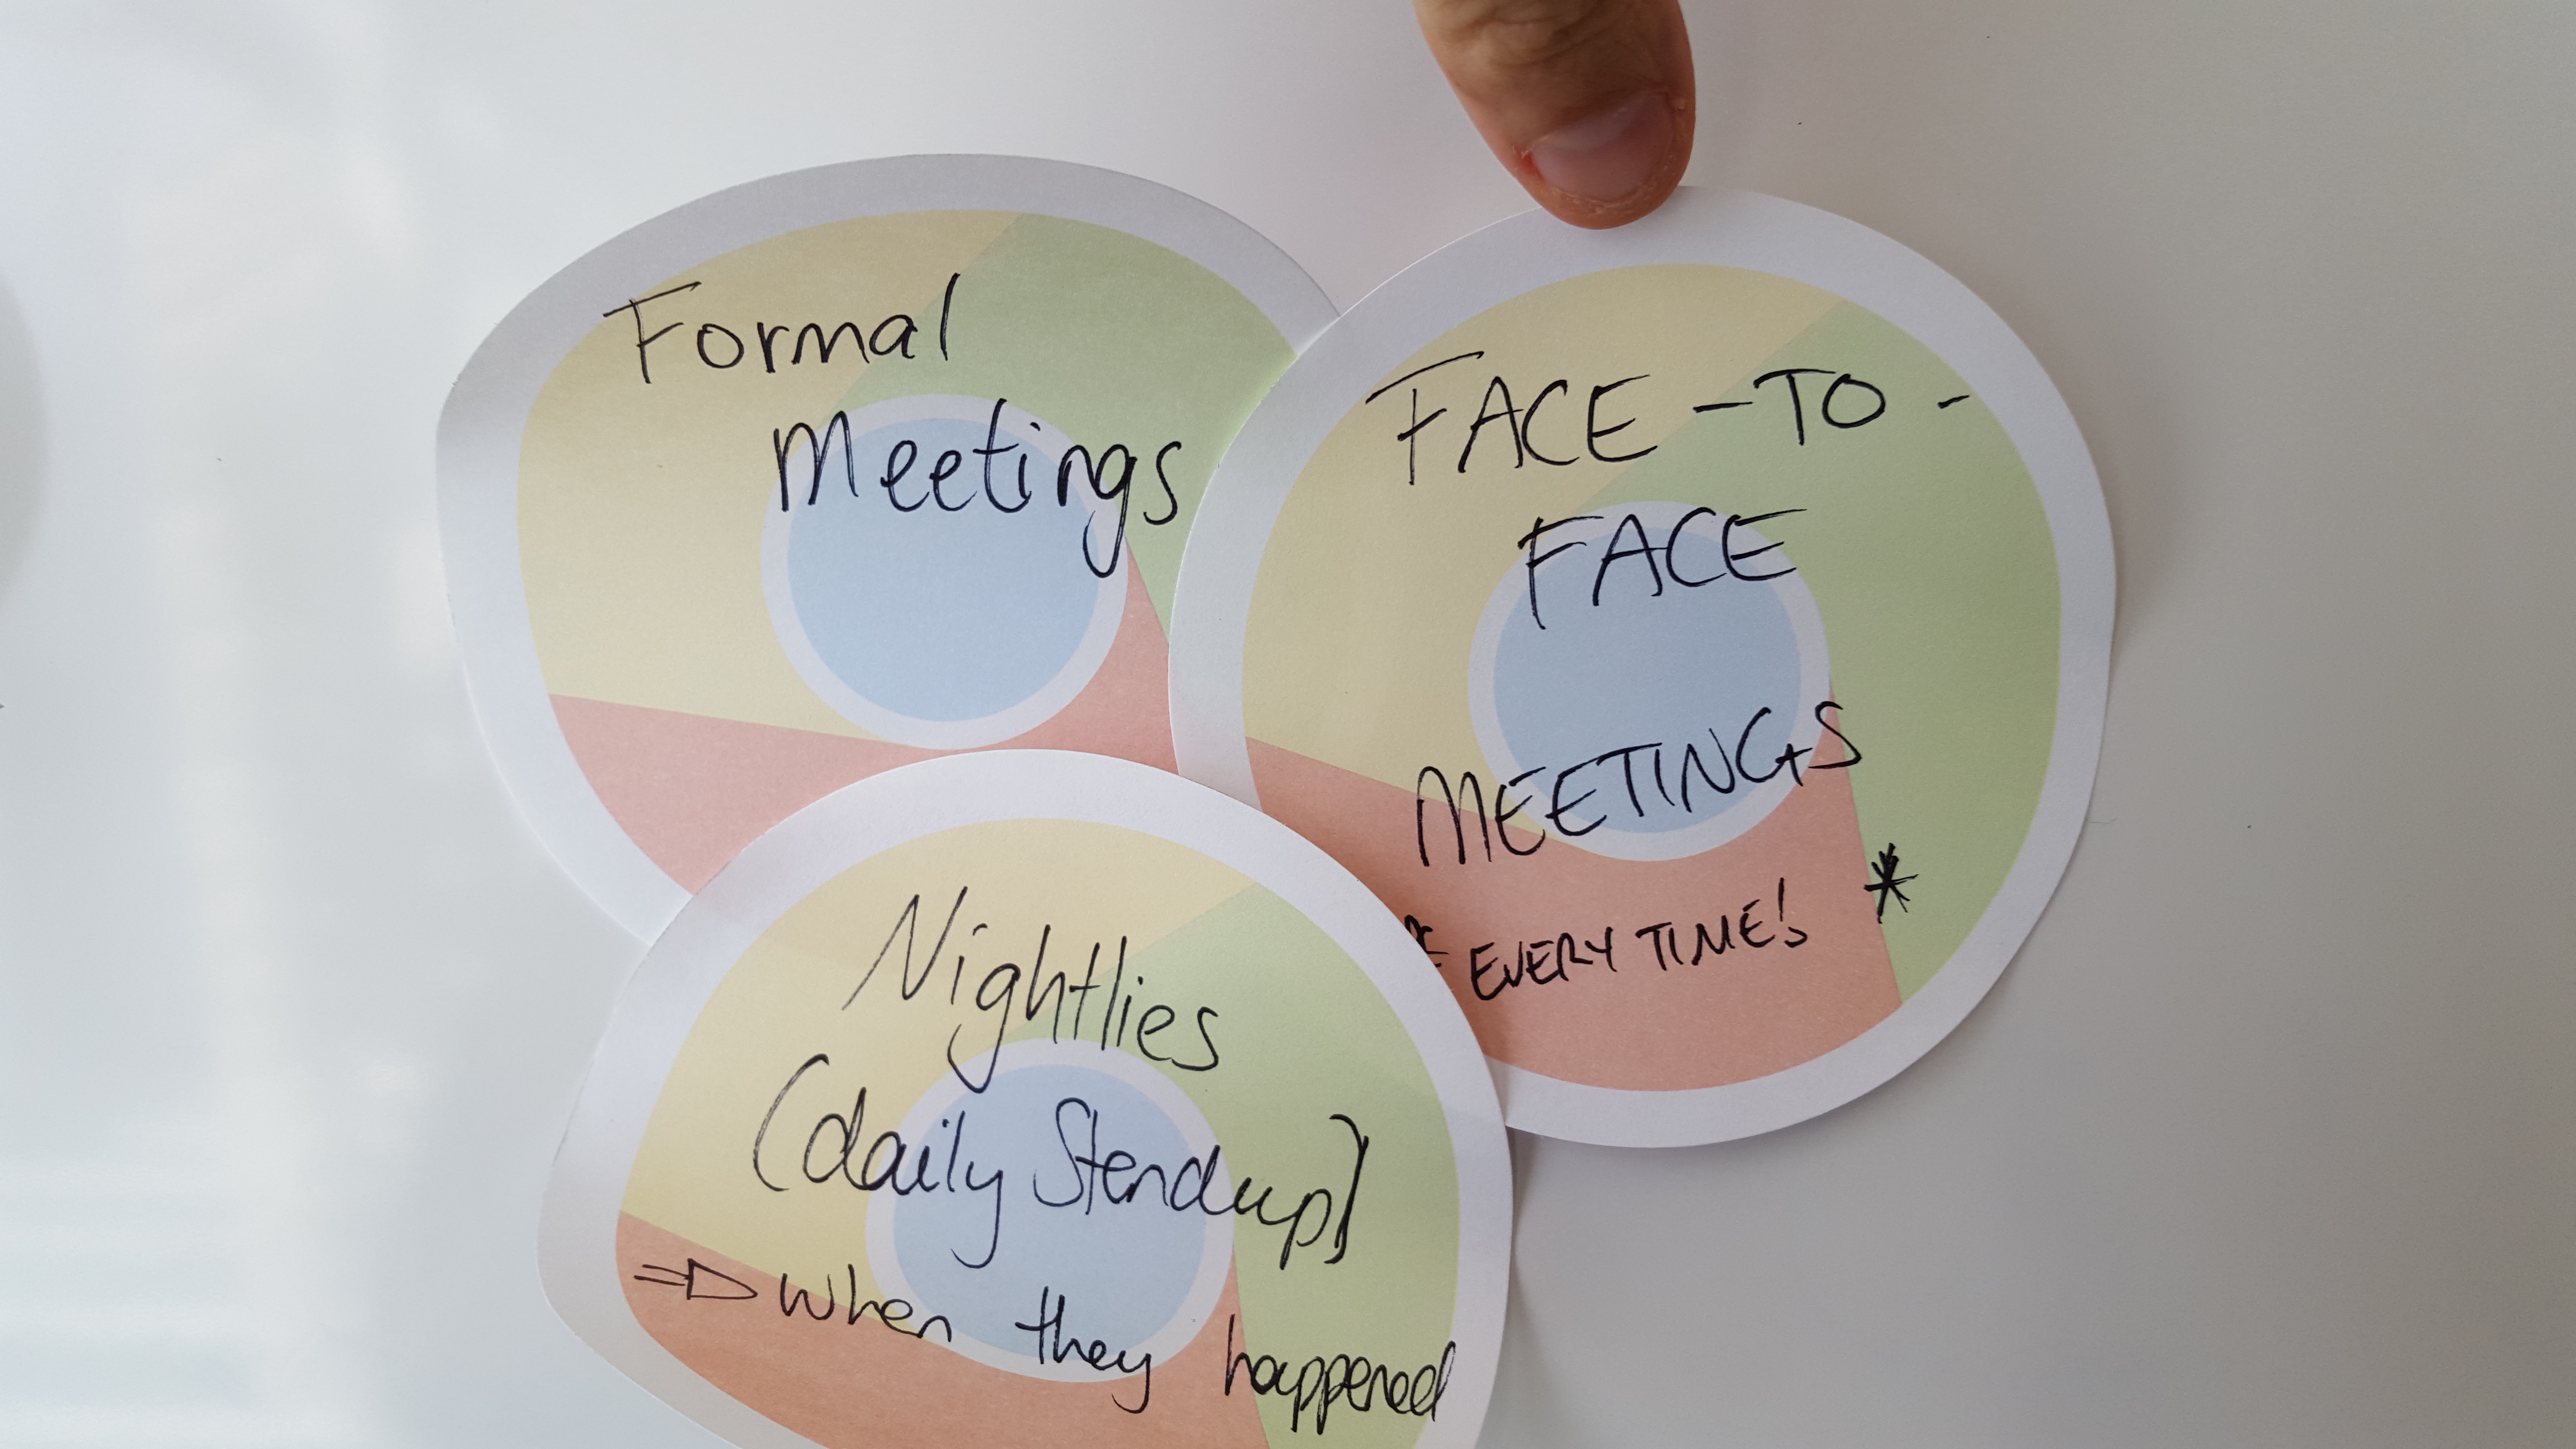 Formal
Meetings
FACE-TO-
FACE
MEETINGS
*
EVERY TIME!
Nightlies
(daily Standup)
=> when they happened